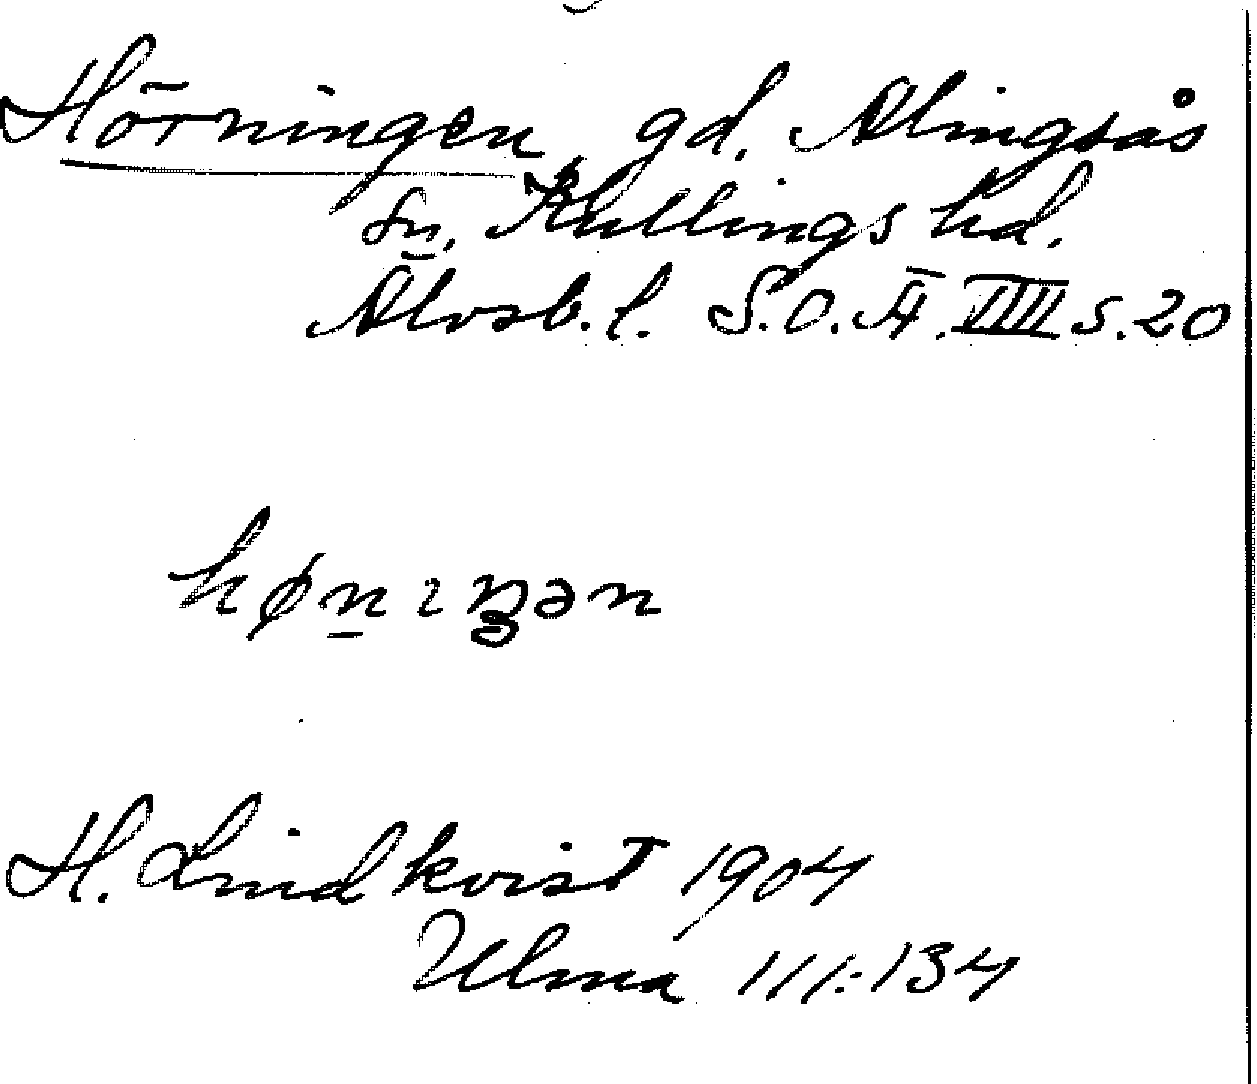 Hörningen, gd. Alingsås
sn, Kullings hd.
Älvsb. l. S.O.Ä. VIII s. 20
høn̲ıŋən
H. Lindkvist 1904
Ulma 111:134